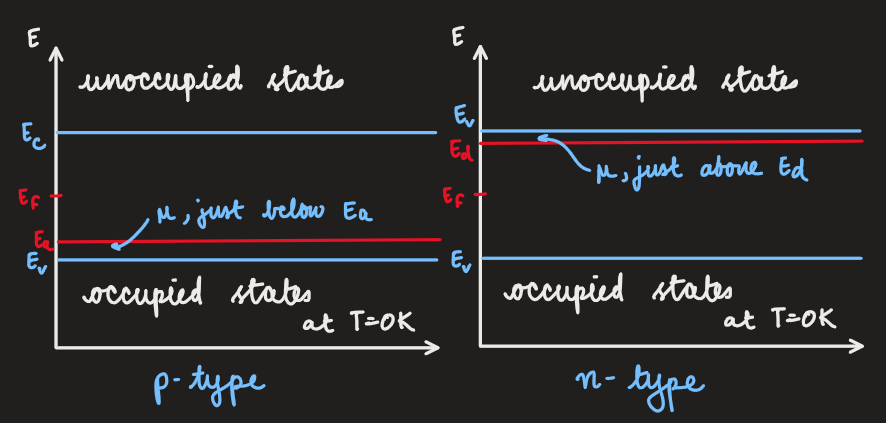 E
unoccupied states
E_c
E_f
μ, just below E_a
E_a
E_v
occupied states
at T=0K
p-type
E
unoccupied states
E_v
E_d
μ, just above E_d
E_f
E_v
occupied states
at T=0K
n-type